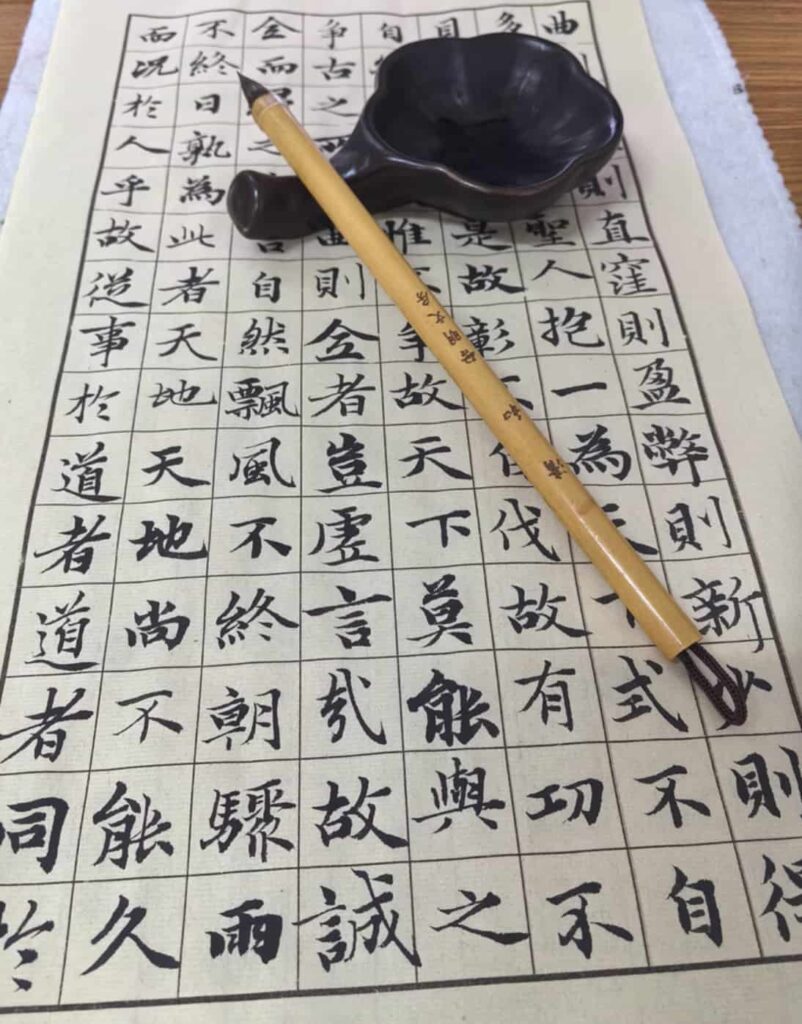 曲則直窪則盈弊則新則得
多聖人抱一為下式不自
見是故彰伐故有功不
自惟故天下莫能與之
争古之曲則全者豈虛言哉故誠
全而之言自然飄風不終朝驟雨
不終日孰為此者天地天地尚不能久
而況於人乎故從事於道者道者同於